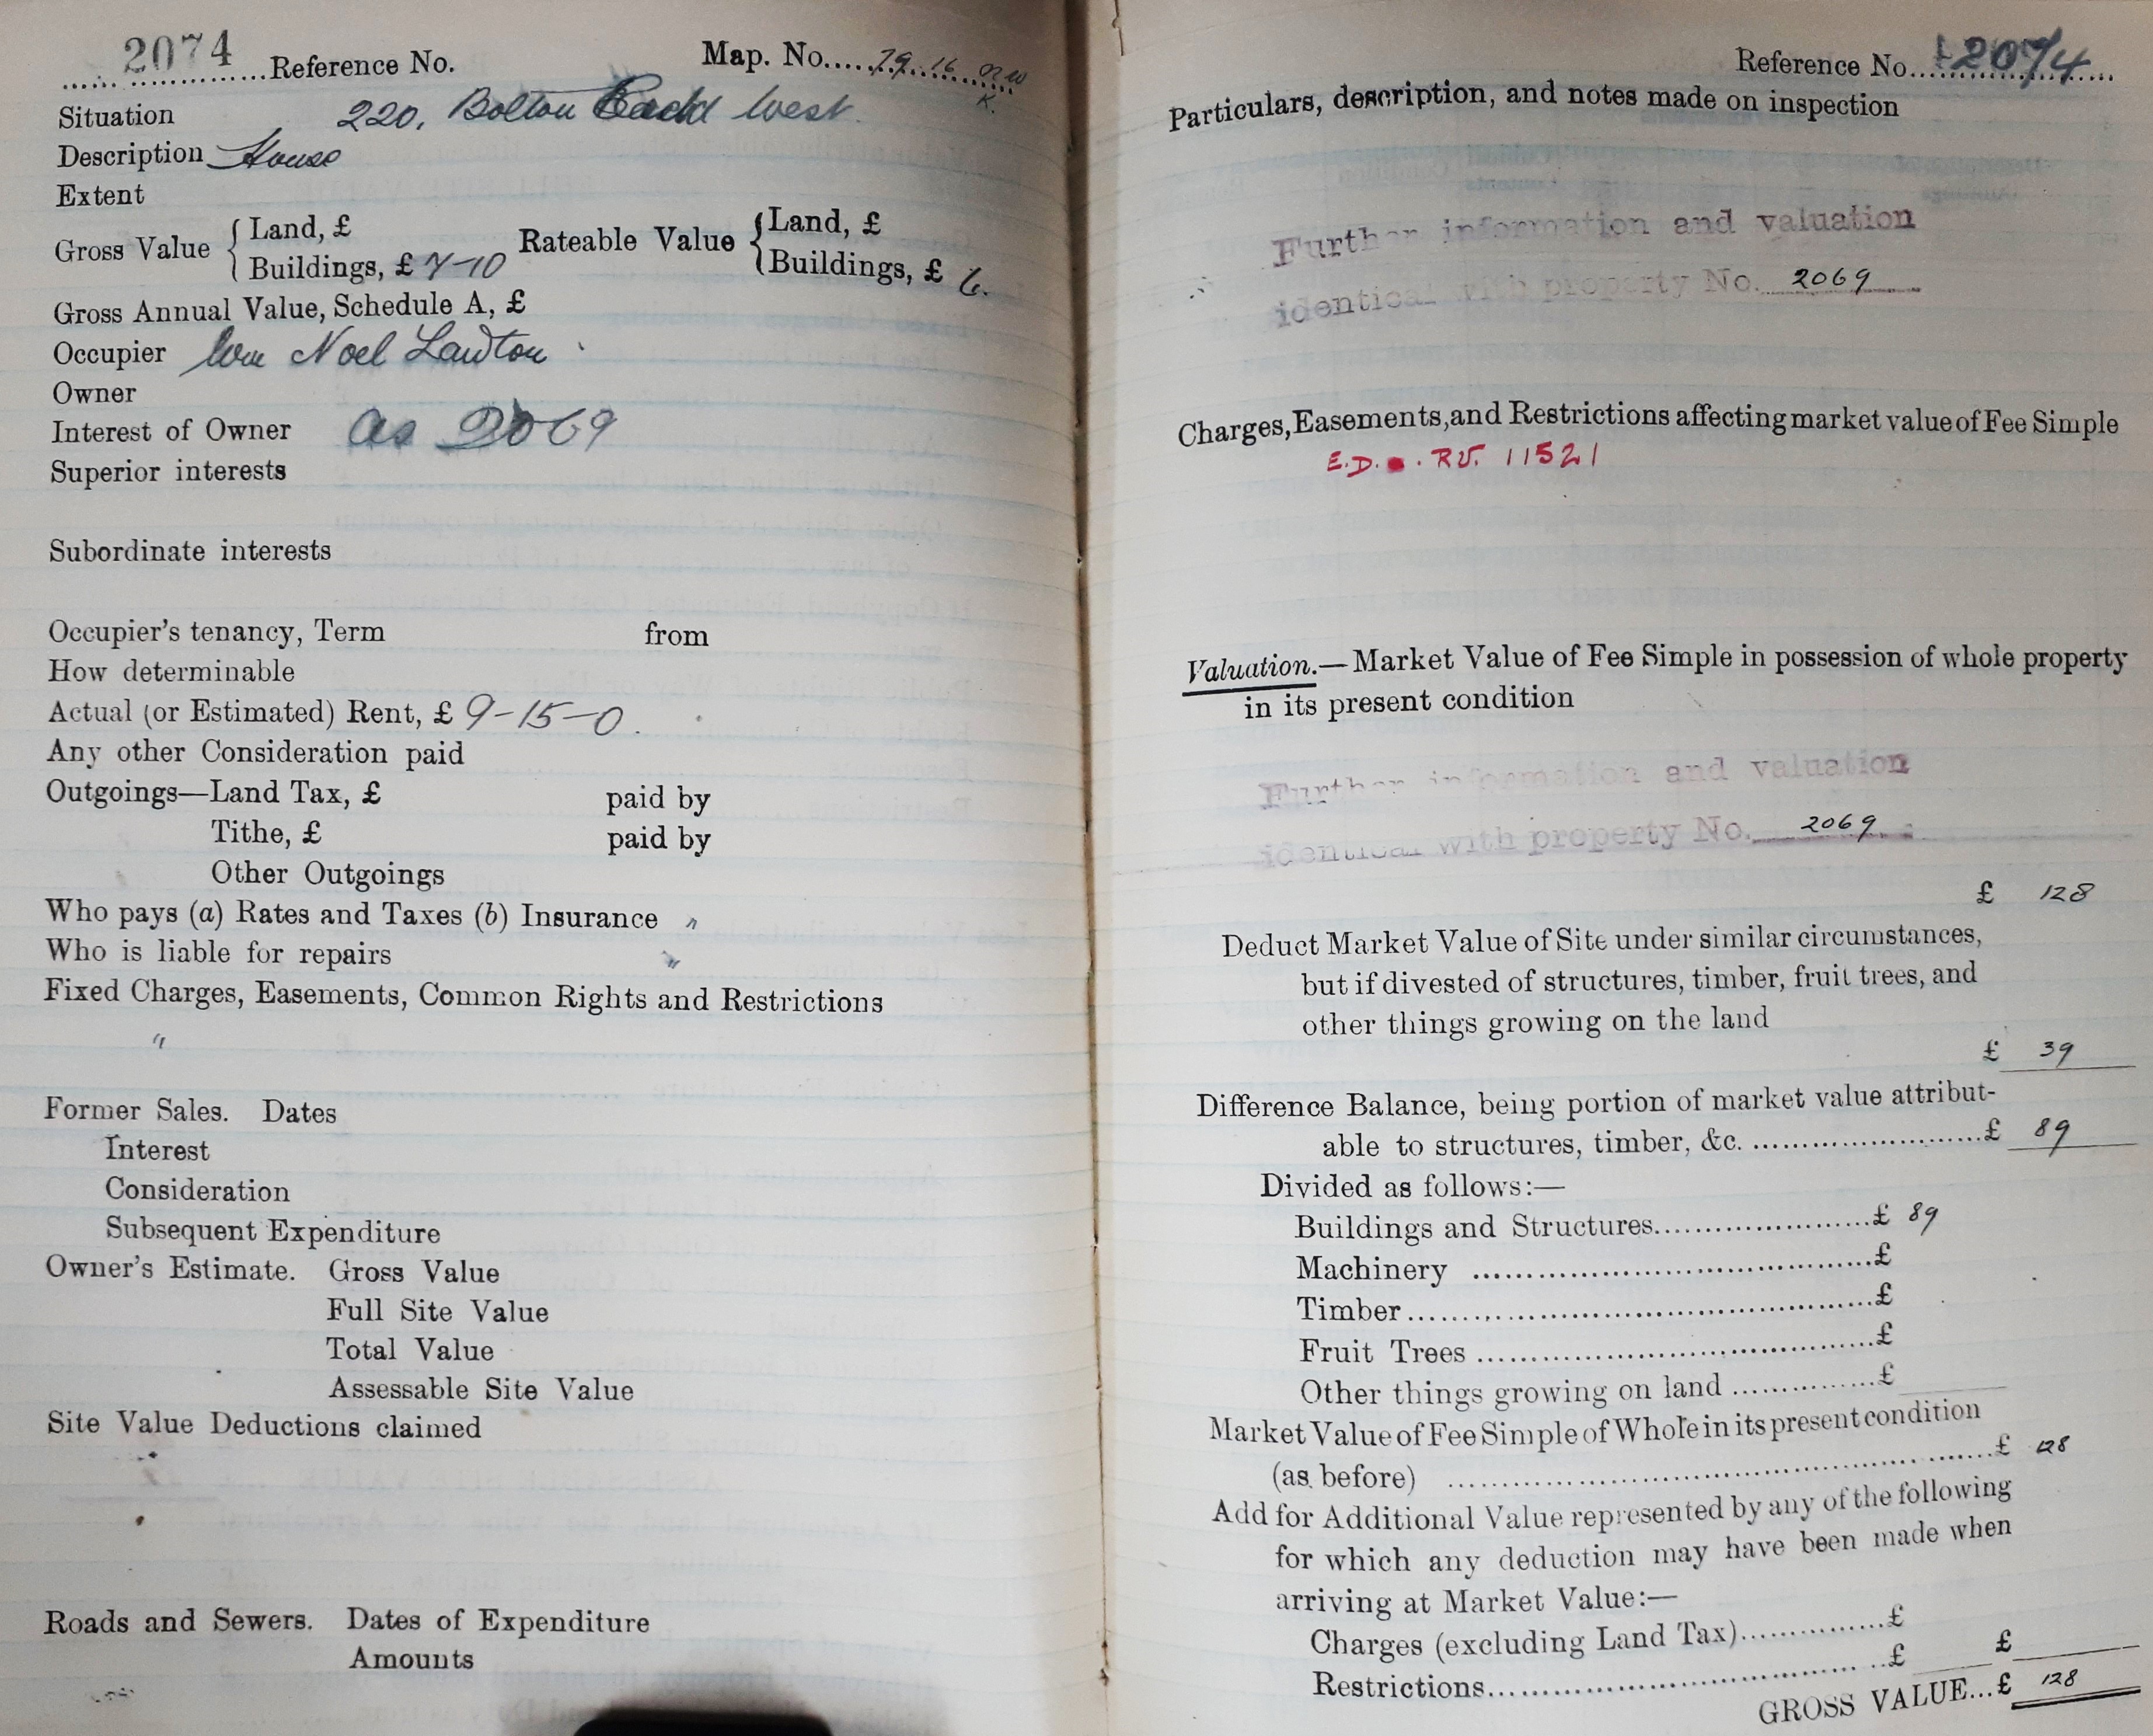 2074 Reference No. Map. No. 79.16 NW
K.
Situation 220, Bolton Road West.
Description House
Extent
Gross Value { Land, £ Rateable Value { Land, £
Buildings, £ 7-10 Buildings, £ 6.
Gross Annual Value, Schedule A, £
Occupier Wm Noel Lawton
Owner
Interest of Owner as 2069
Superior interests
Subordinate interests
Occupier's tenancy, Term from
How determinable
Actual (or Estimated) Rent, £ 9-15-0.
Any other Consideration paid
Outgoings—Land Tax, £ paid by
Tithe, £ paid by
Other Outgoings
Who pays (a) Rates and Taxes (b) Insurance "
Who is liable for repairs "
Fixed Charges, Easements, Common Rights and Restrictions
"
Former Sales. Dates
Interest
Consideration
Subsequent Expenditure
Owner's Estimate. Gross Value
Full Site Value
Total Value
Assessable Site Value
Site Value Deductions claimed
Roads and Sewers. Dates of Expenditure
Amounts
Reference No. 2074
Particulars, description, and notes made on inspection
Further information and valuation
identical with property No. 2069
Charges, Easements, and Restrictions affecting market value of Fee Simple
E.D. . RV. 11521
Valuation.—Market Value of Fee Simple in possession of whole property
in its present condition
Further information and valuation
identical with property No. 2069
£ 128
Deduct Market Value of Site under similar circumstances,
but if divested of structures, timber, fruit trees, and
other things growing on the land
£ 39
Difference Balance, being portion of market value attribut-
able to structures, timber, &c. £ 89
Divided as follows:—
Buildings and Structures £ 89
Machinery £
Timber £
Fruit Trees £
Other things growing on land £
Market Value of Fee Simple of Whole in its present condition
(as before) £ 128
Add for Additional Value represented by any of the following
for which any deduction may have been made when
arriving at Market Value:—
Charges (excluding Land Tax) £
Restrictions £ £
GROSS VALUE...£ 128